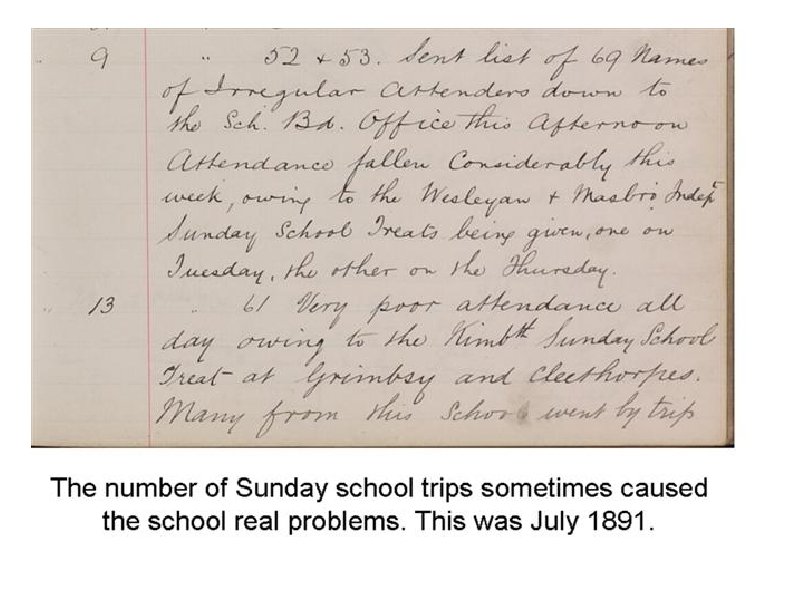 9 " 52 + 53. Sent list of 69 Names
of Irregular Attenders down to
the Sch. Bd. Office this Afternoon
Attendance fallen Considerably this
week, owing to the Wesleyan + Masbro Indept
Sunday School Treats being given, one on
Tuesday, the other on the Thursday.
" 13 " 61 Very poor attendance all
day owing to the Kimbth Sunday School
Treat at Grimbsy and Cleethorpes.
Many from this School went by trip
The number of Sunday school trips sometimes caused
the school real problems. This was July 1891.